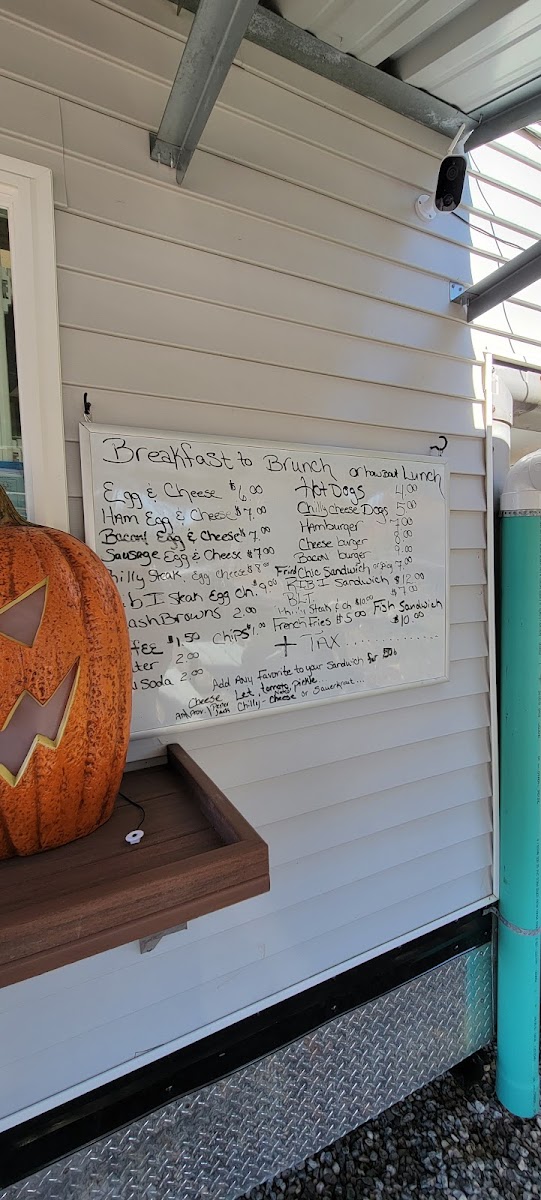 Breakfast to Brunch or how bout Lunch
Egg & Cheese $6.00
HAm Egg & Cheese $7.00
Bacon Egg & Cheese $7.00
Sausage Egg & Cheese $7.00
hilly Steak, Egg Cheese $8.00
b I Steak Egg Ch. $9.00
ash Browns 2.00
fee $1.50
ter 2.00
Soda 2.00
Chips $1.00
Hot Dogs 4.00
Chilly Cheese Dogs 5.00
HAmburger 7.00
Cheese burger 8.00
Bacon burger 9.00
Fried Chic Sandwich 7.00
RIB I Sandwich $12.00
BLT $7.00
Philly Steak & Ch $10.00
Fish Sandwich $10.00
French Fries $5.00
+ TAX
Add Any favorite to your Sandwich for 50¢
Cheese Let, tomato, pickle
Pepper Jack Chilly-Cheese or Sauerkraut...